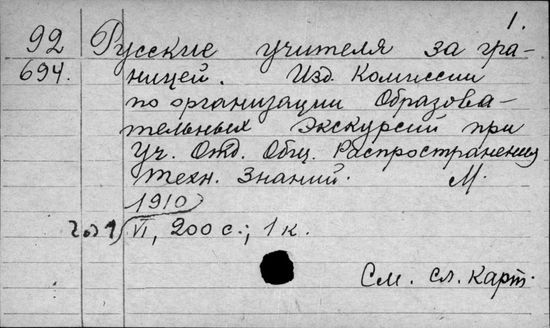 1.
92 Русские учителя за гра-
694. ницей. Изд. Комиссии
по организации Образова-
тельных Экскурсий при
Уч. Отд. Общ. Распространению
Техн. Знаний. М.
1910
VI, 200 с.; 1 к.
См. сл. карт.